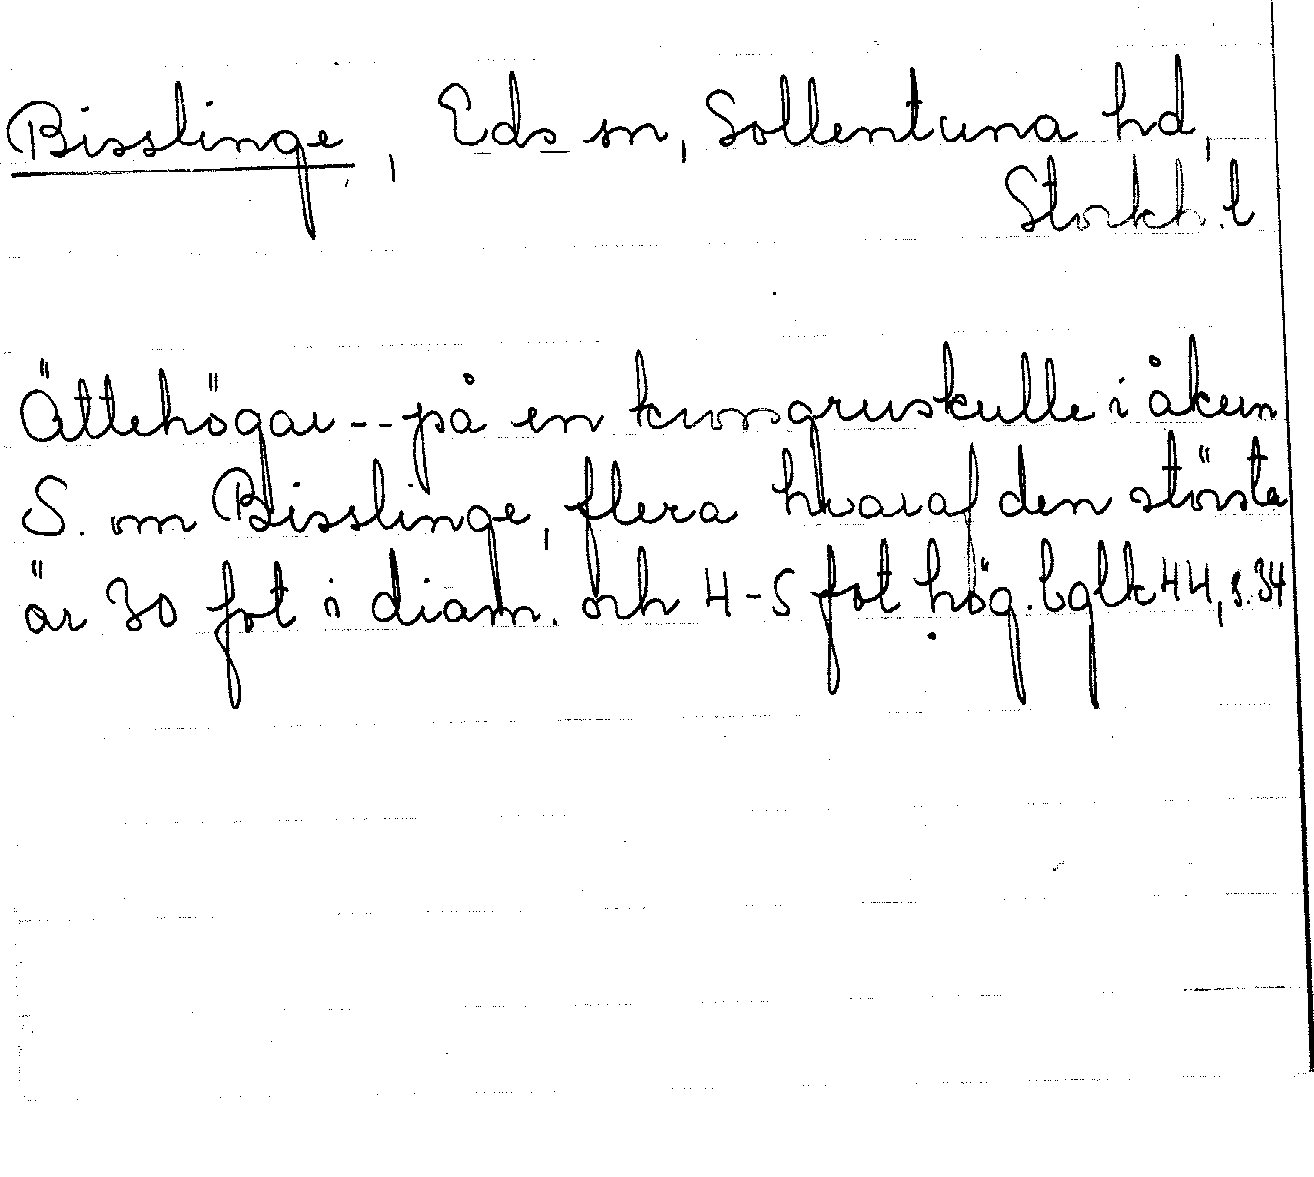 Bisslinge, Eds sn, Sollentuna hd,
Stockh. l
Ättehögar -- på en krossgruskulle i åkern
S. om Bisslinge, flera hvaraf den största
är 30 fot i diam. och 4-5 fot hög. bglk 44, s. 34